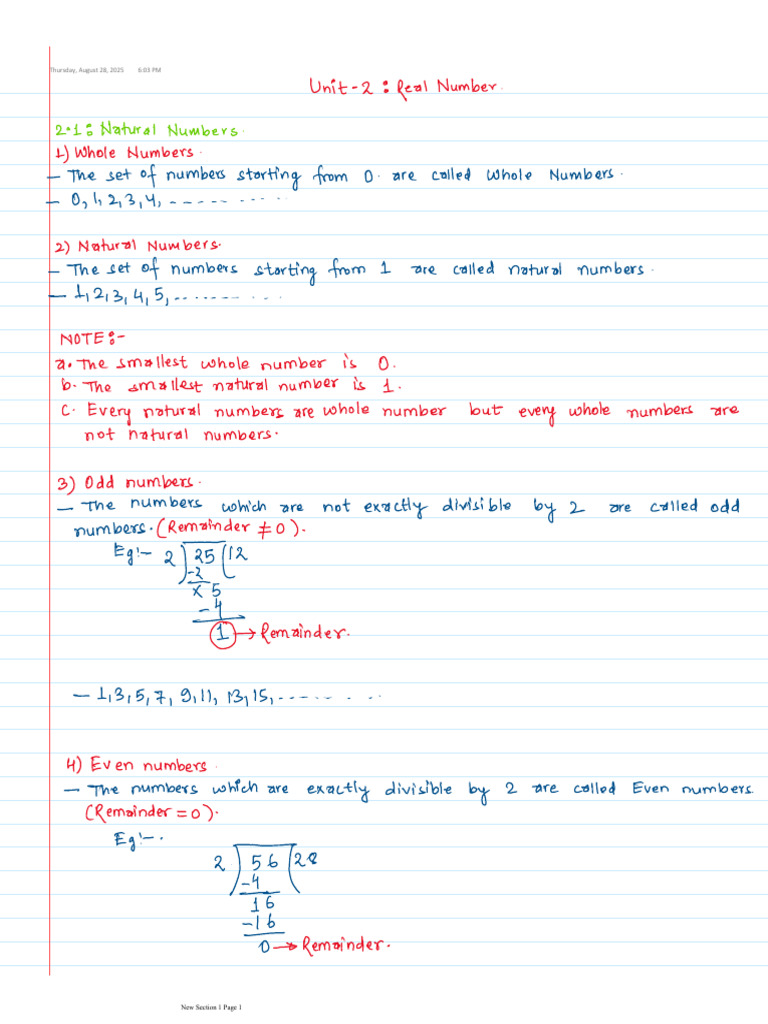 Thursday, August 28, 2025 6:03 PM
Unit-2 : Real Number.
2.1: Natural Numbers.
1) Whole Numbers.
- The set of numbers starting from 0 are called Whole Numbers.
- 0, 1, 2, 3, 4, ----------
2) Natural Numbers.
- The set of numbers starting from 1 are called natural numbers.
- 1, 2, 3, 4, 5, ----------
NOTE:-
a. The smallest whole number is 0.
b. The smallest natural number is 1.
c. Every natural numbers are whole number but every whole numbers are
not natural numbers.
3) Odd numbers.
- The numbers which are not exactly divisible by 2 are called odd
numbers. (Remainder ≠ 0).
Eg:- 2) 25 (12
-2
x 5
-4
1 → Remainder.
- 1, 3, 5, 7, 9, 11, 13, 15, ----------
4) Even numbers.
- The numbers which are exactly divisible by 2 are called Even numbers.
(Remainder = 0).
Eg:-.
2) 56 (28
-4
16
-16
0 → Remainder.
New Section 1 Page 1